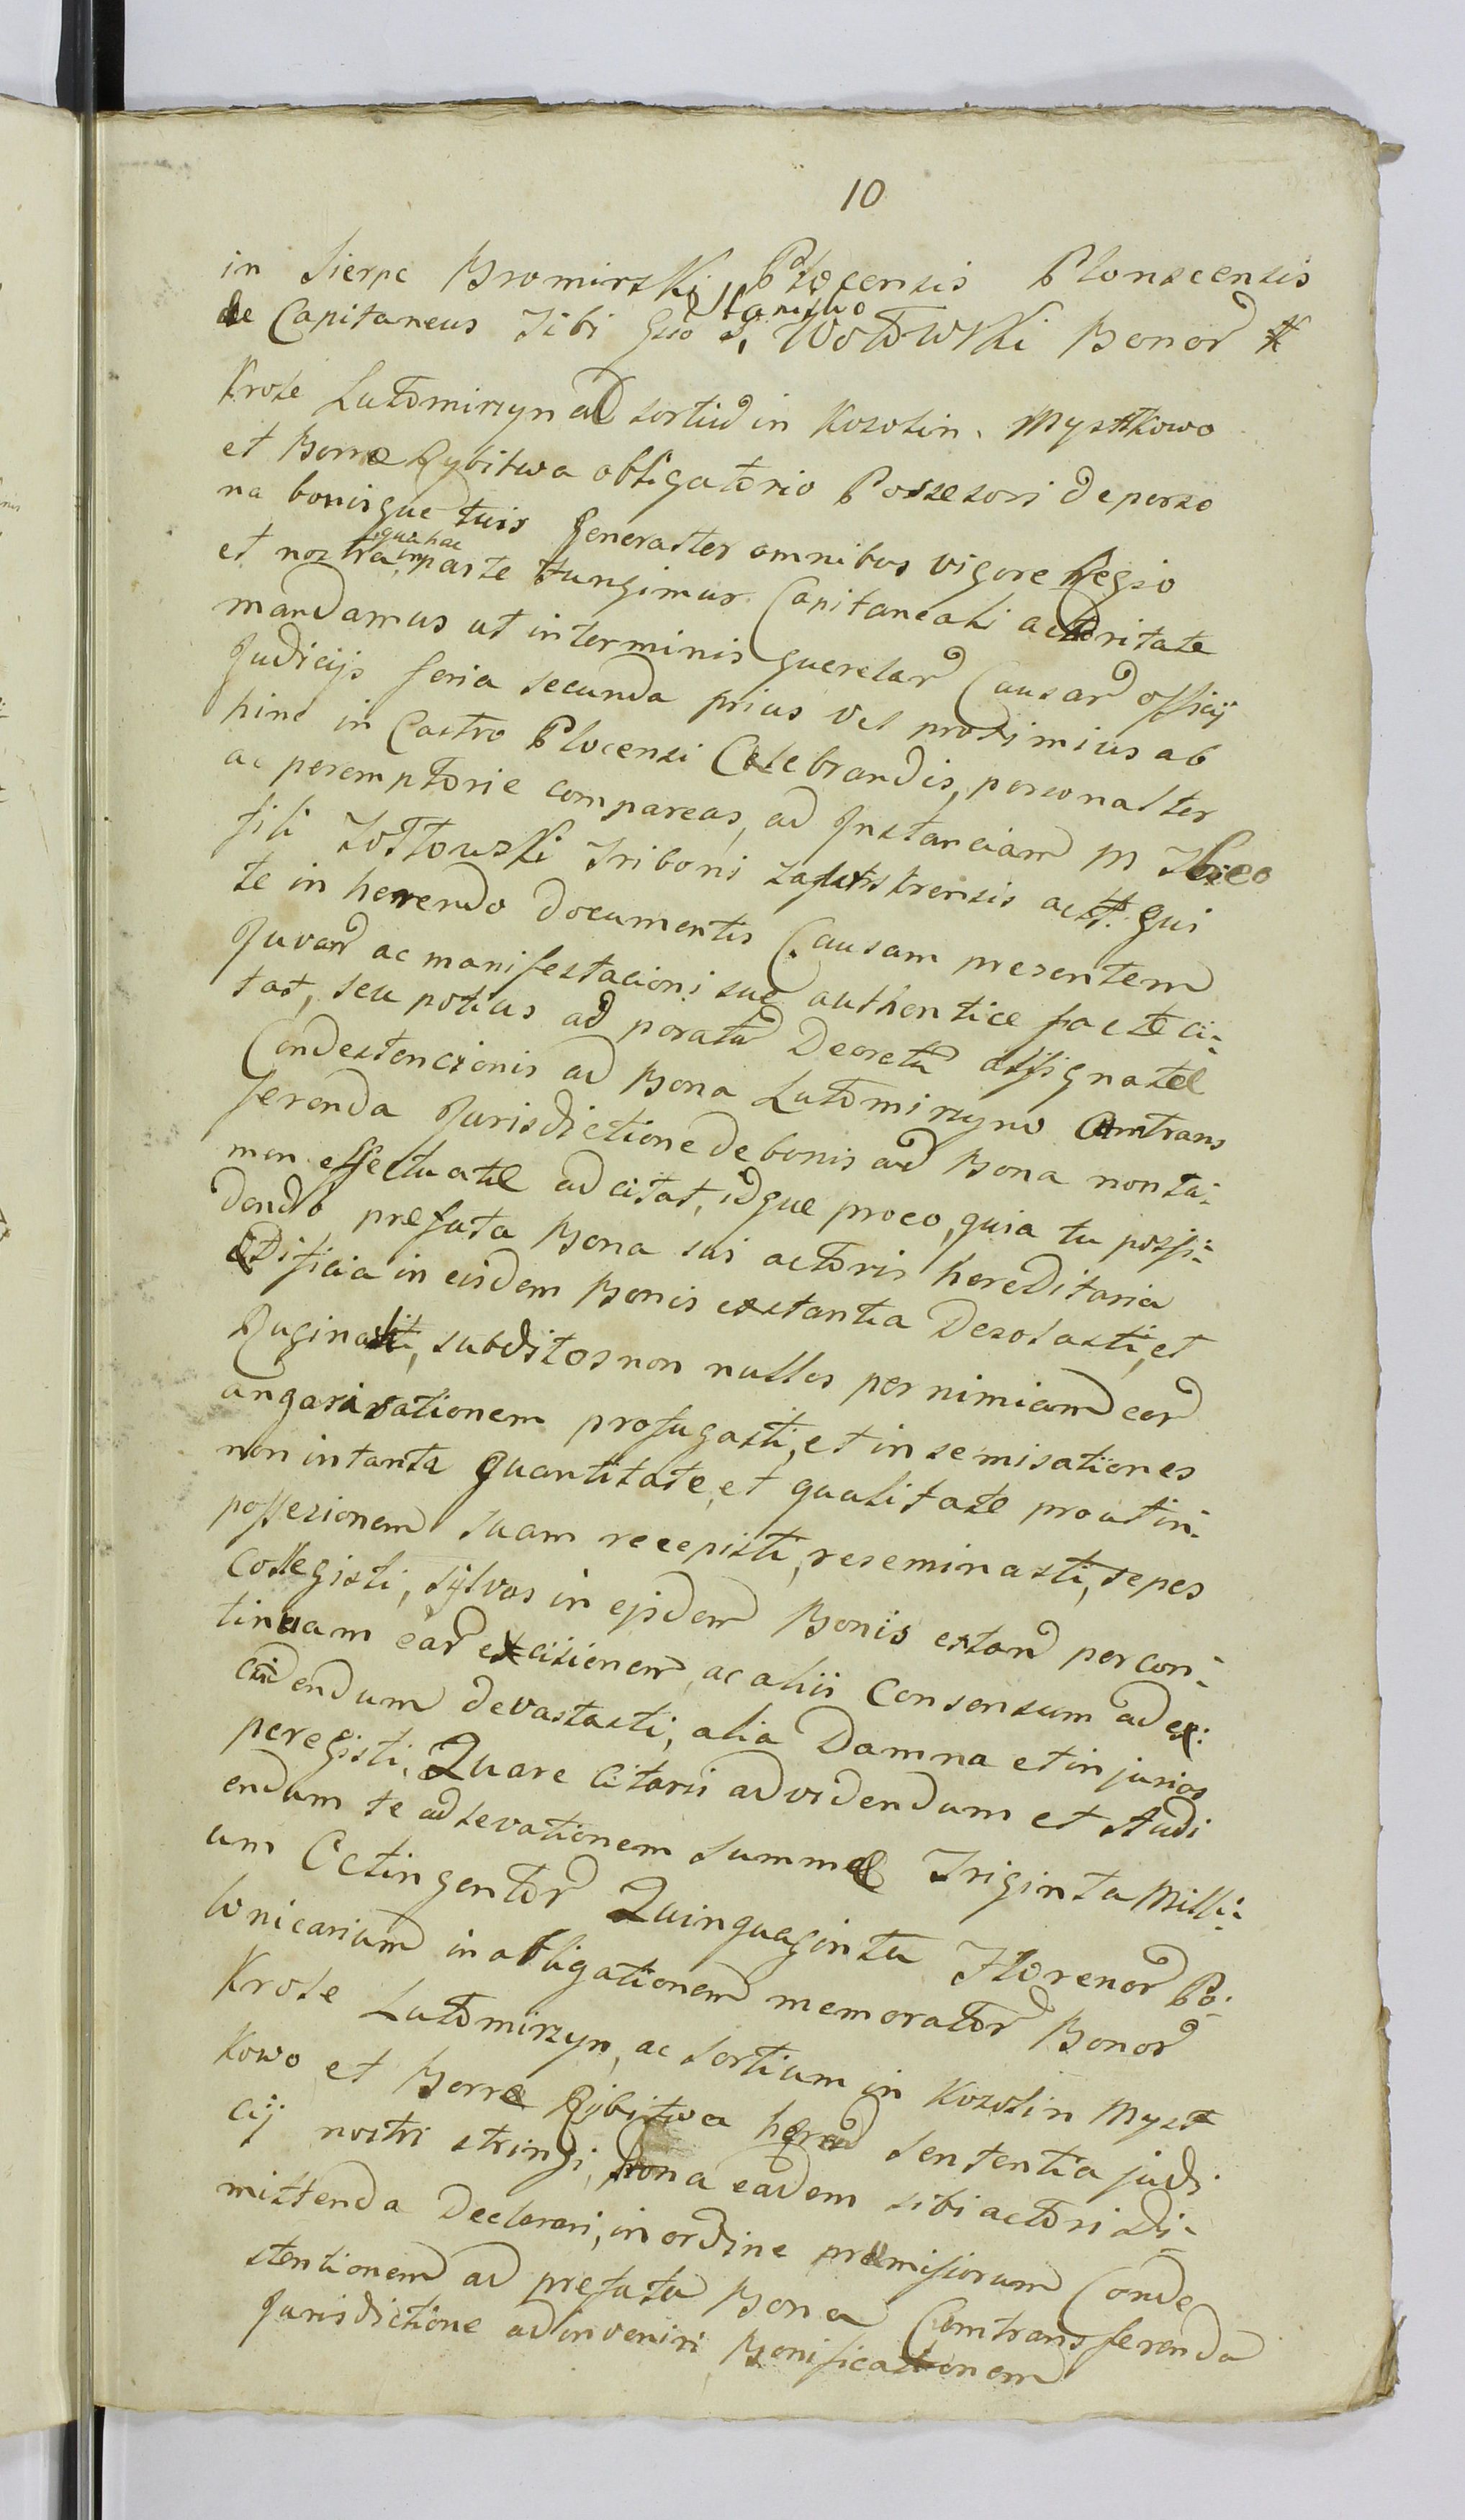 10
in Sierpc Bromirski, Plocensis Plonscensis
de Capitaneus Tibi Gso Stanislao Wołowski Bonor
Krole Lutomirzyn ad sortium in Kozolin. Mystkowo
et Borre Rybitwa obligatorio Possesori de perso
na bonisque tuis Generalter omnibus vigore Regio
et nostra, qua hac in parte fungimur Capitaneali actoritate
mandamus ut in terminis querelar Causar officij
Judicijs feria secunda prius vel proximius ab
hinc in Castro Plocensi Celebrandis, personalter
ac peremptorie compareas, ad Instanciam M Theo
fili Zołtowski Triboni Zakrens actt. qui
te in herendo documentis Causam presentem
Juvan ac manifestacioni sue authentice facte ci-
tat, seu potius ad poratu Decretu assignate
Condestencionis ad Bona Lutomirzyno Comtrans
ferenda Jurisdictione de bonis ad Bona non ta-
men effectuate adcitat, idque pro eo, quia tu possi-
dendo prefata Bona sui actoris hereditaria
Edificia in eisdem Bonis extantia Desolasti, et
Ruginasti, subditos non nullos per nimiam eor
angarisationem profugasti, et in semisationes
non in tanta quantitate, et qualitate prout in-
possesionem suam recepisti, reseminasti, sepes
Collegisti, sylvas in ejsdem Bonis extan per con-
tinuam ear excisionem, ac alii Consensum ad ex-
cidendum devastasti, alia Damna et injurias
peregisti, Quare Citaris ad videndum et Audi
endum te ad levationem Summae Triginta Milli-
um Octingentor Quinquaginta Florenor Po-
lonicarium in obligationem memorator Bonor
Krole Lutomirzyn, ac Sortium in Kozolin Myst
kowo et Borre Rybitwa heren sententia judi
cij nostri stringi, bona eadem sibi actori di-
mittenda Declarari, in ordine premissorum Conde
stentionem ad prefata Bona Comtransferenda
Jurisdictione adinveniri Bonificationem